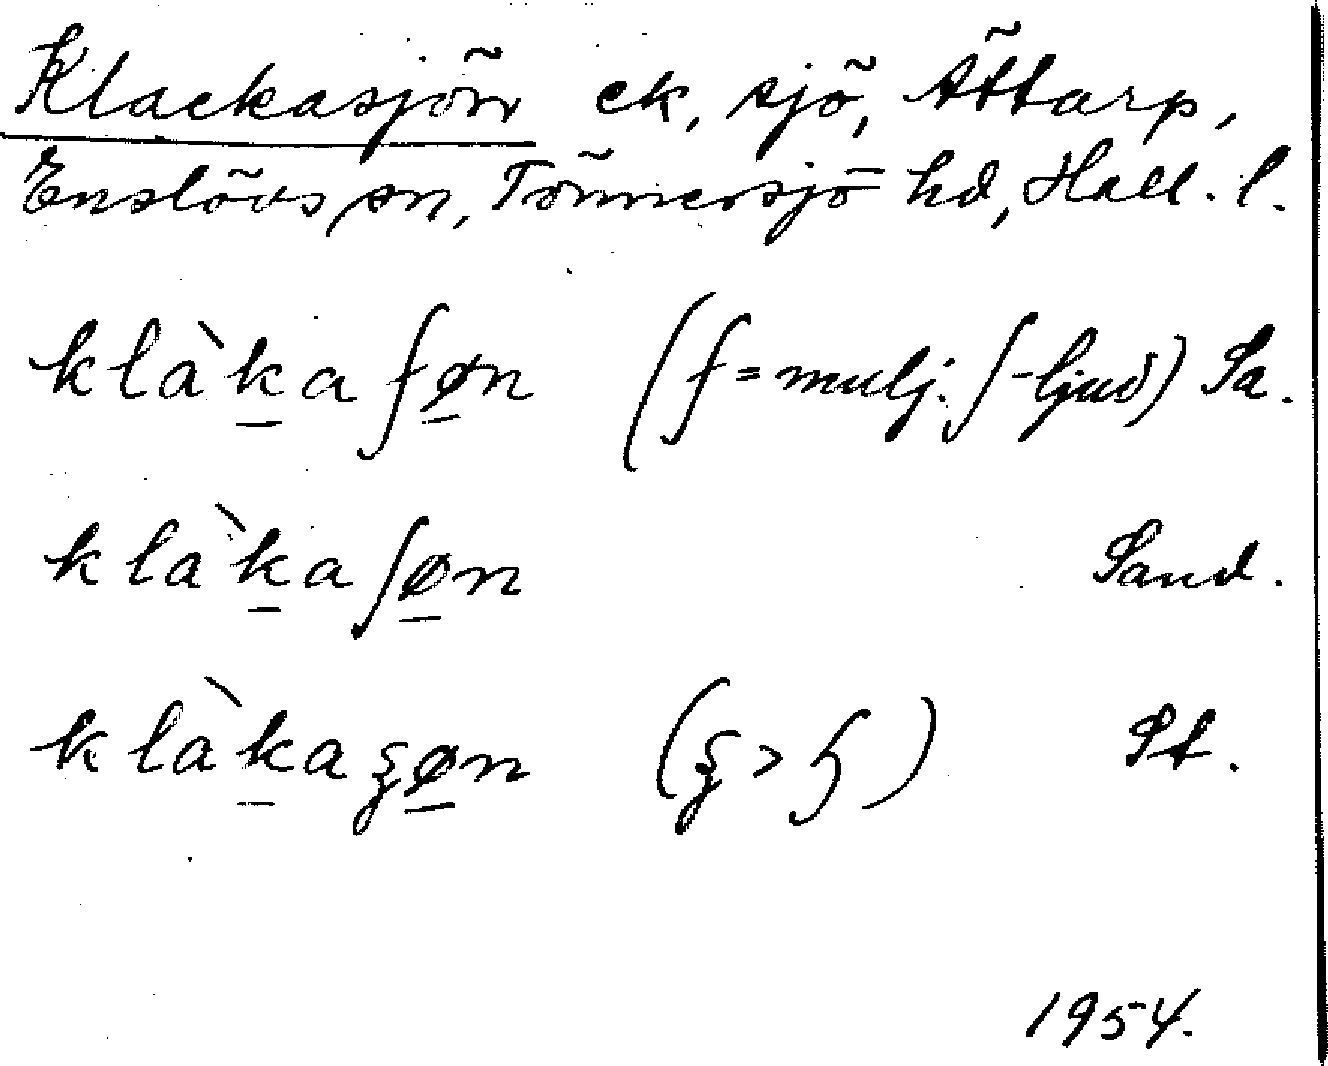 Klackasjön ek, sjö, Ättarp,
Enslövs sn, Tönnersjö hd, Hall. l.
klàkaʄøn (ʄ = mulj. ʃ-ljud) Sa.
klàkaʃøn Sand.
klàkaʒøn (ʒ > ɧ) St.
1954.